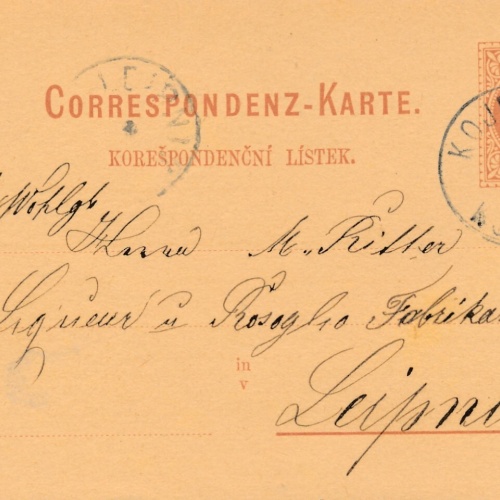 LEIPNIK
CORRESPONDENZ-KARTE.
KOREŠPONDENČNÍ LÍSTEK.
KO
Wohlgb
Herrn M. Ritter
Liqueur u Rosoglio Fabrikan
in
v
Leipni